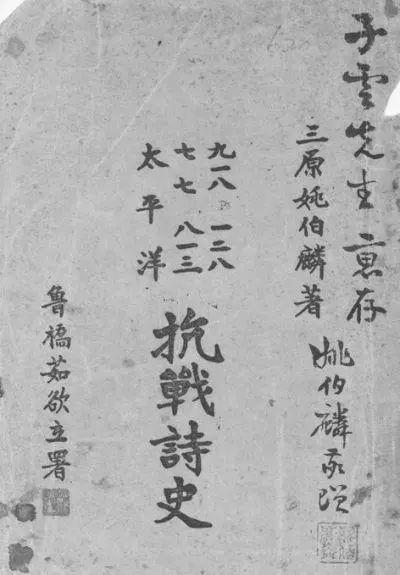 子雲先生惠存
姚伯麟敬贈
三原姚伯麟著
九一八 一二八
七七 八一三
太平洋
抗戰詩史
魯橋茹欲立署